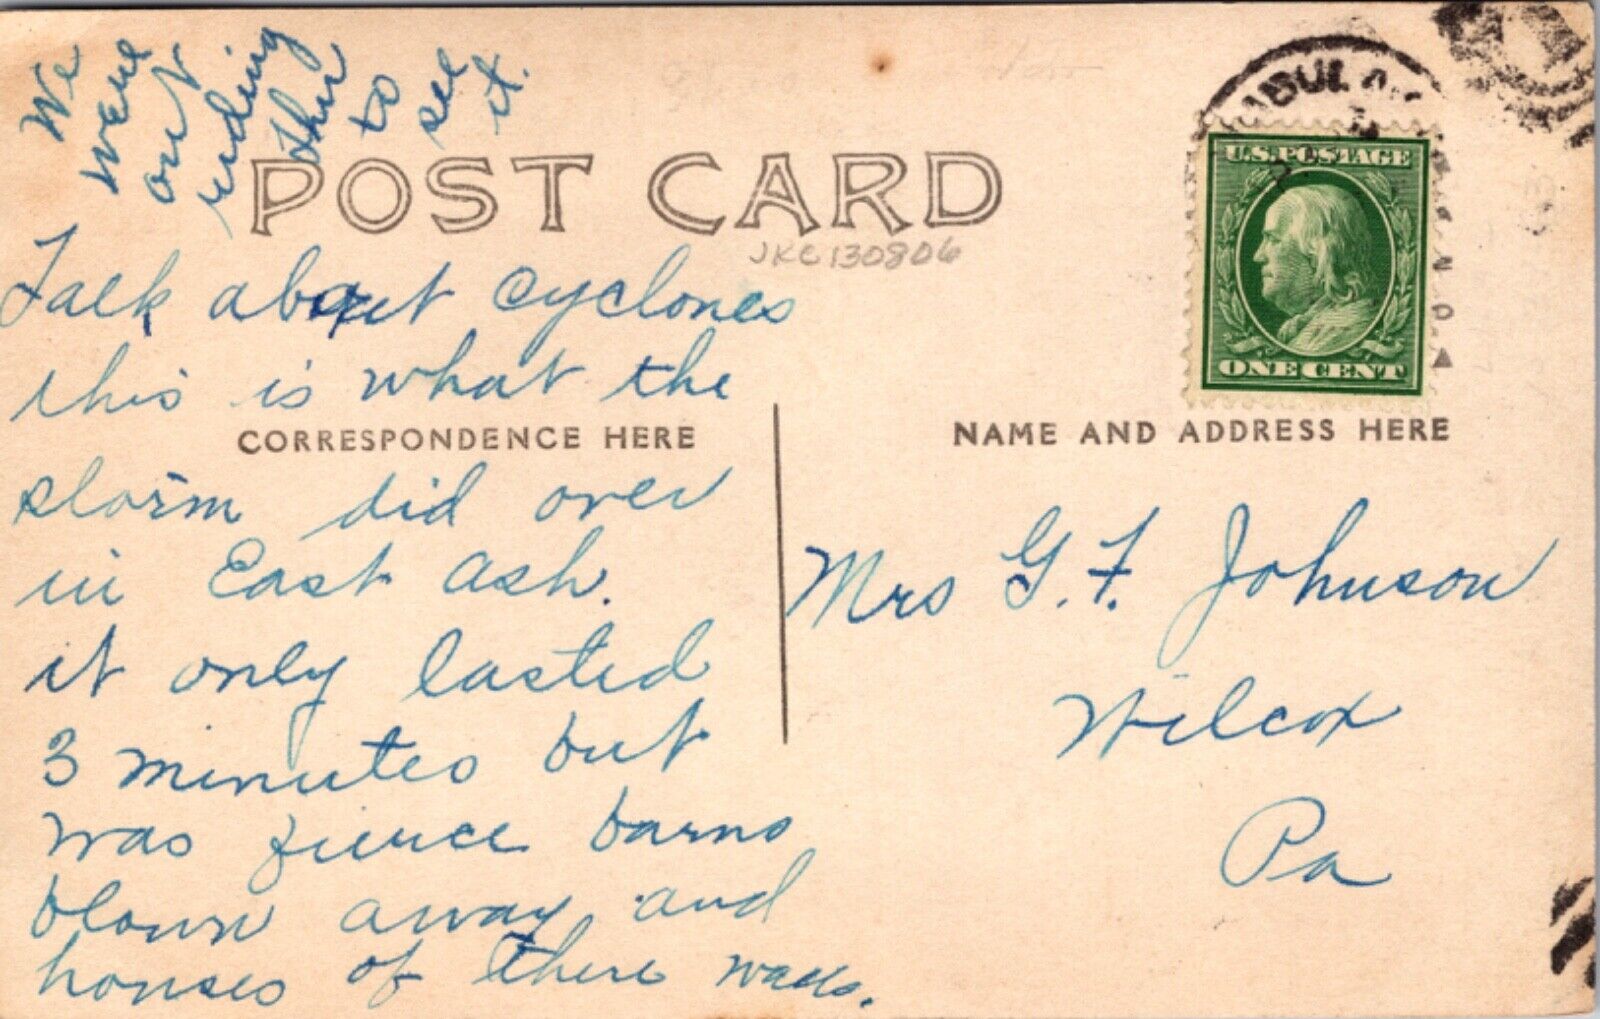 We
were
out
riding
thru
to
see
it.
POST CARD
JKC130806
Talk about cyclones
this is what the
CORRESPONDENCE HERE
storm did over
in East Ash.
it only lasted
3 minutes but
was fierce barns
blown away and
houses of there
U.S. POSTAGE
ONE CENT
NAME AND ADDRESS HERE
Mrs G. F. Johnson
Wilcox
Pa